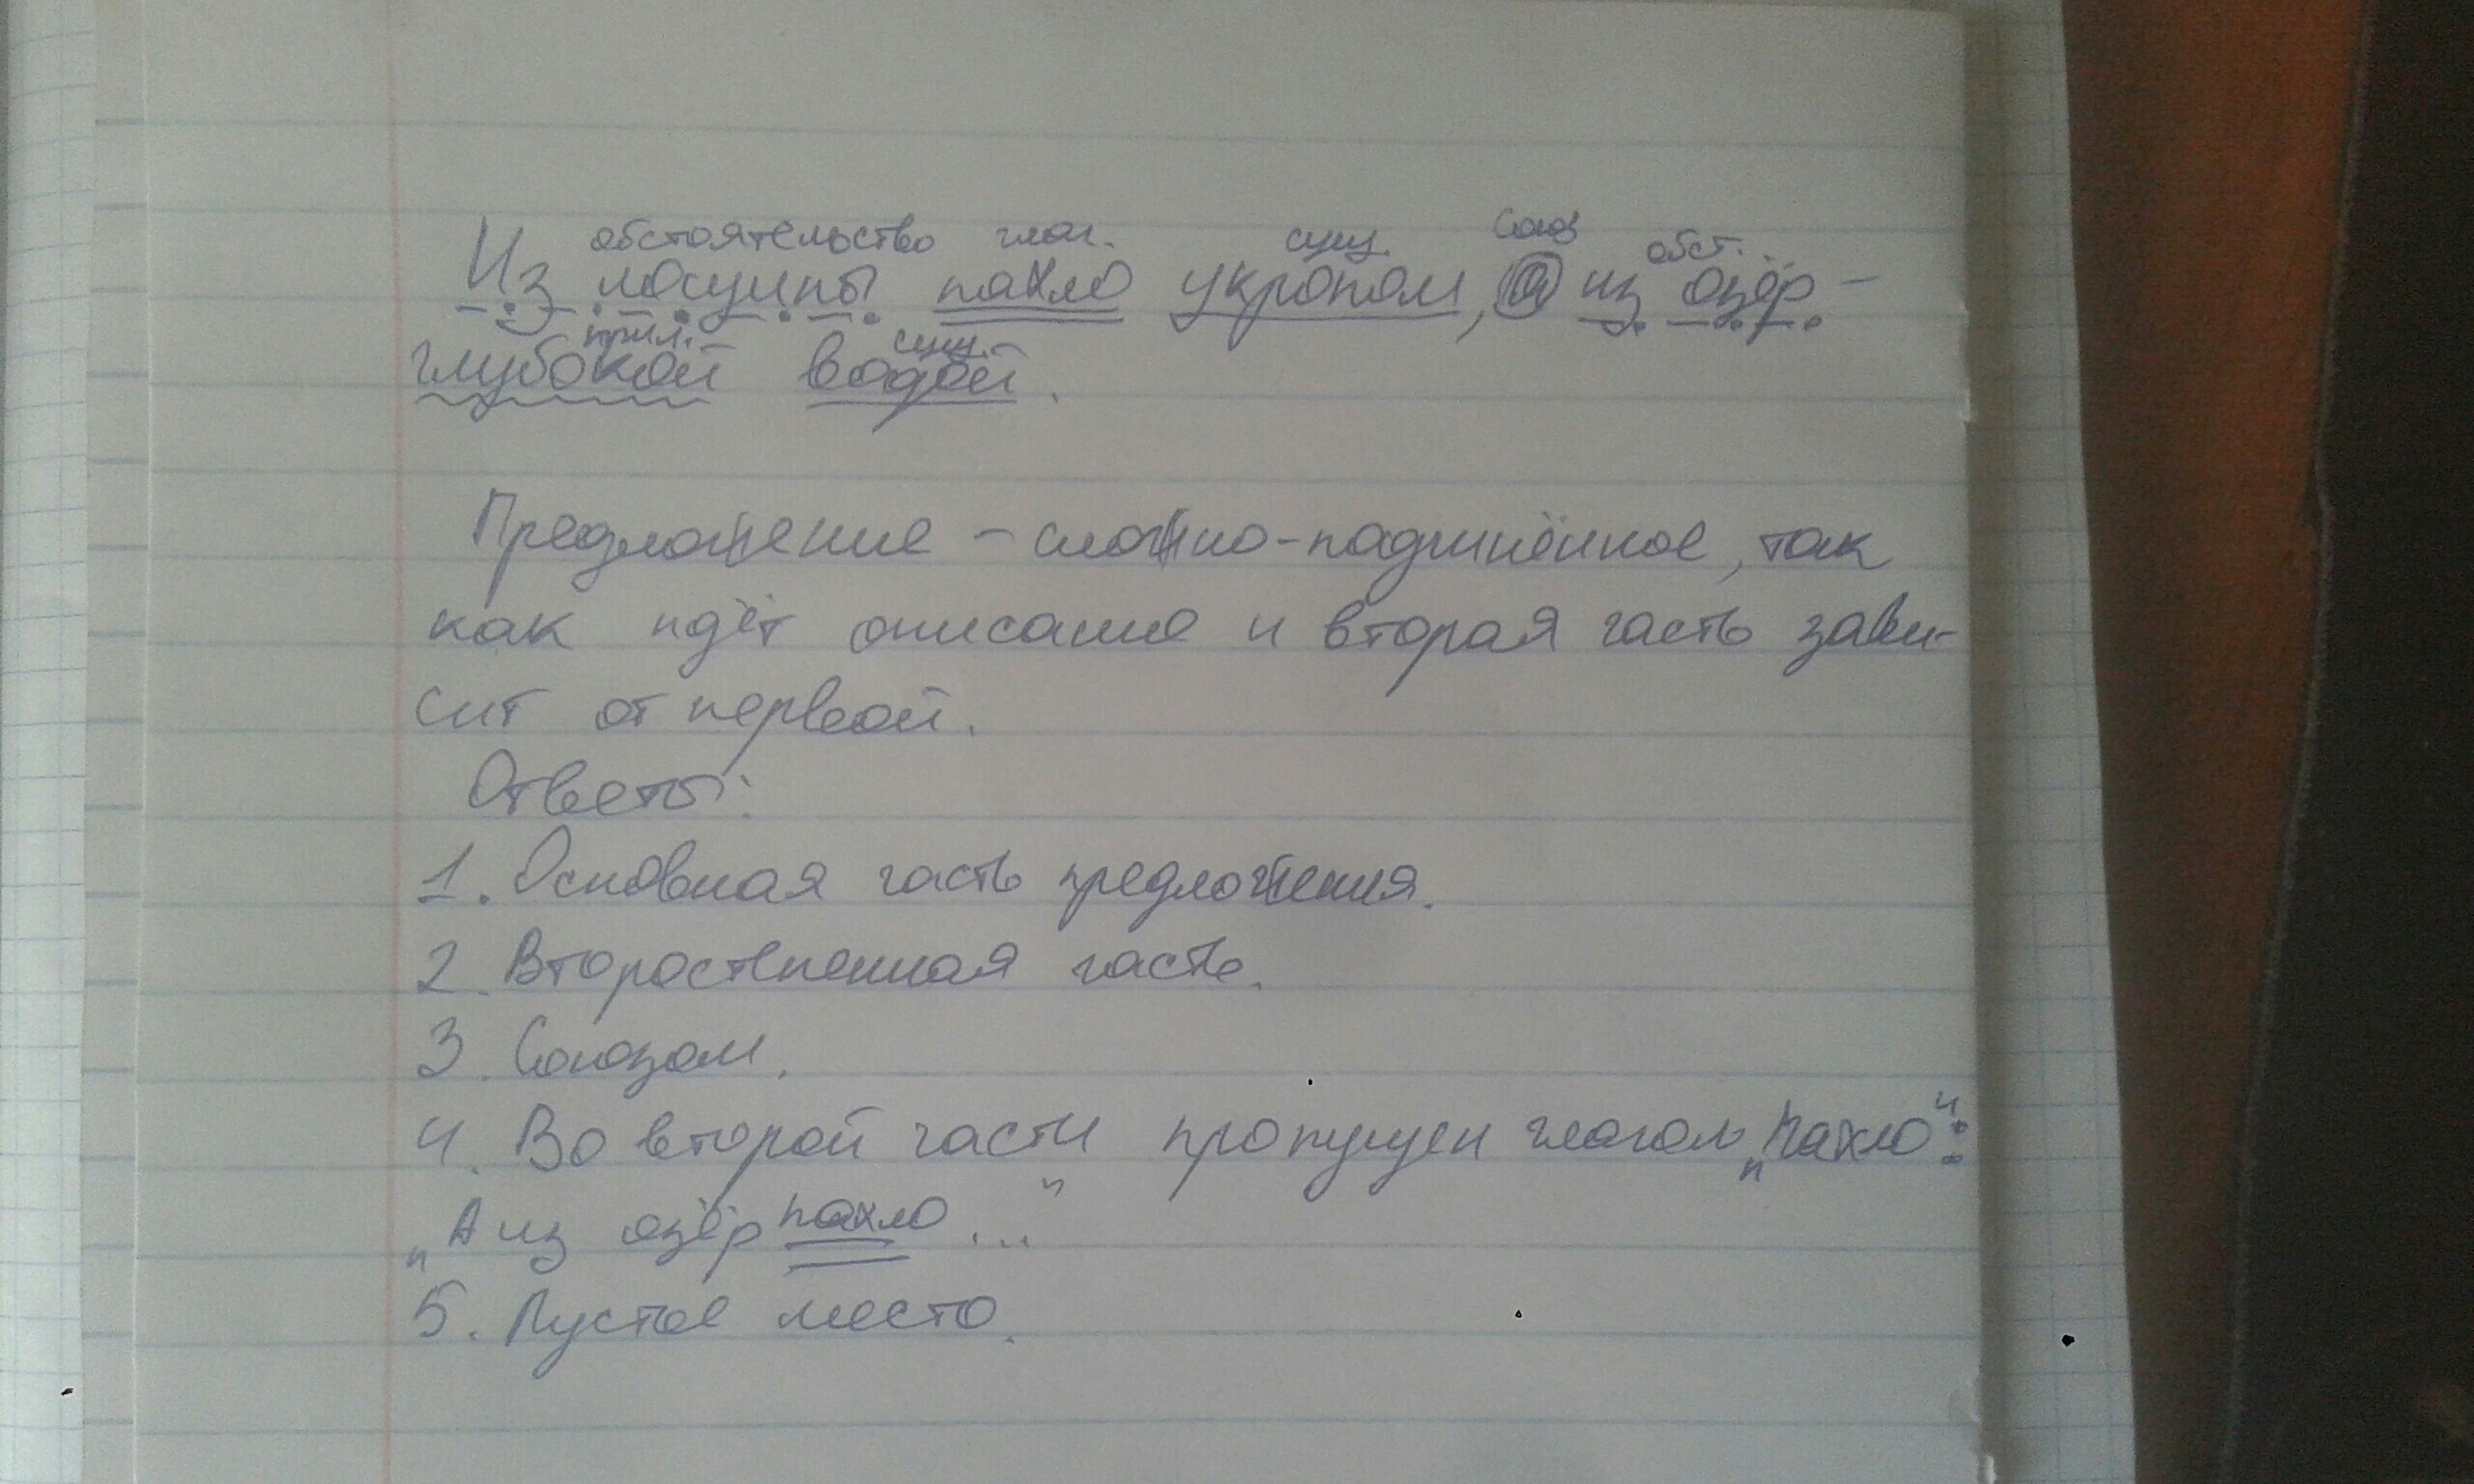 обстоятельство глаг. сущ. союз обст.
Из лощины пахло укропом, а из озёр –
прил. сущ.
глубокой водой.
Предложение – сложно-подчинённое, так
как идёт описание и вторая часть зави-
сит от первой.
Ответы:
1. Основная часть предложения.
2. Второстепенная часть.
3. Союзом.
4. Во второй части пропущен глагол „пахло“:
„А из озёр пахло ...“
5. Пустое место.